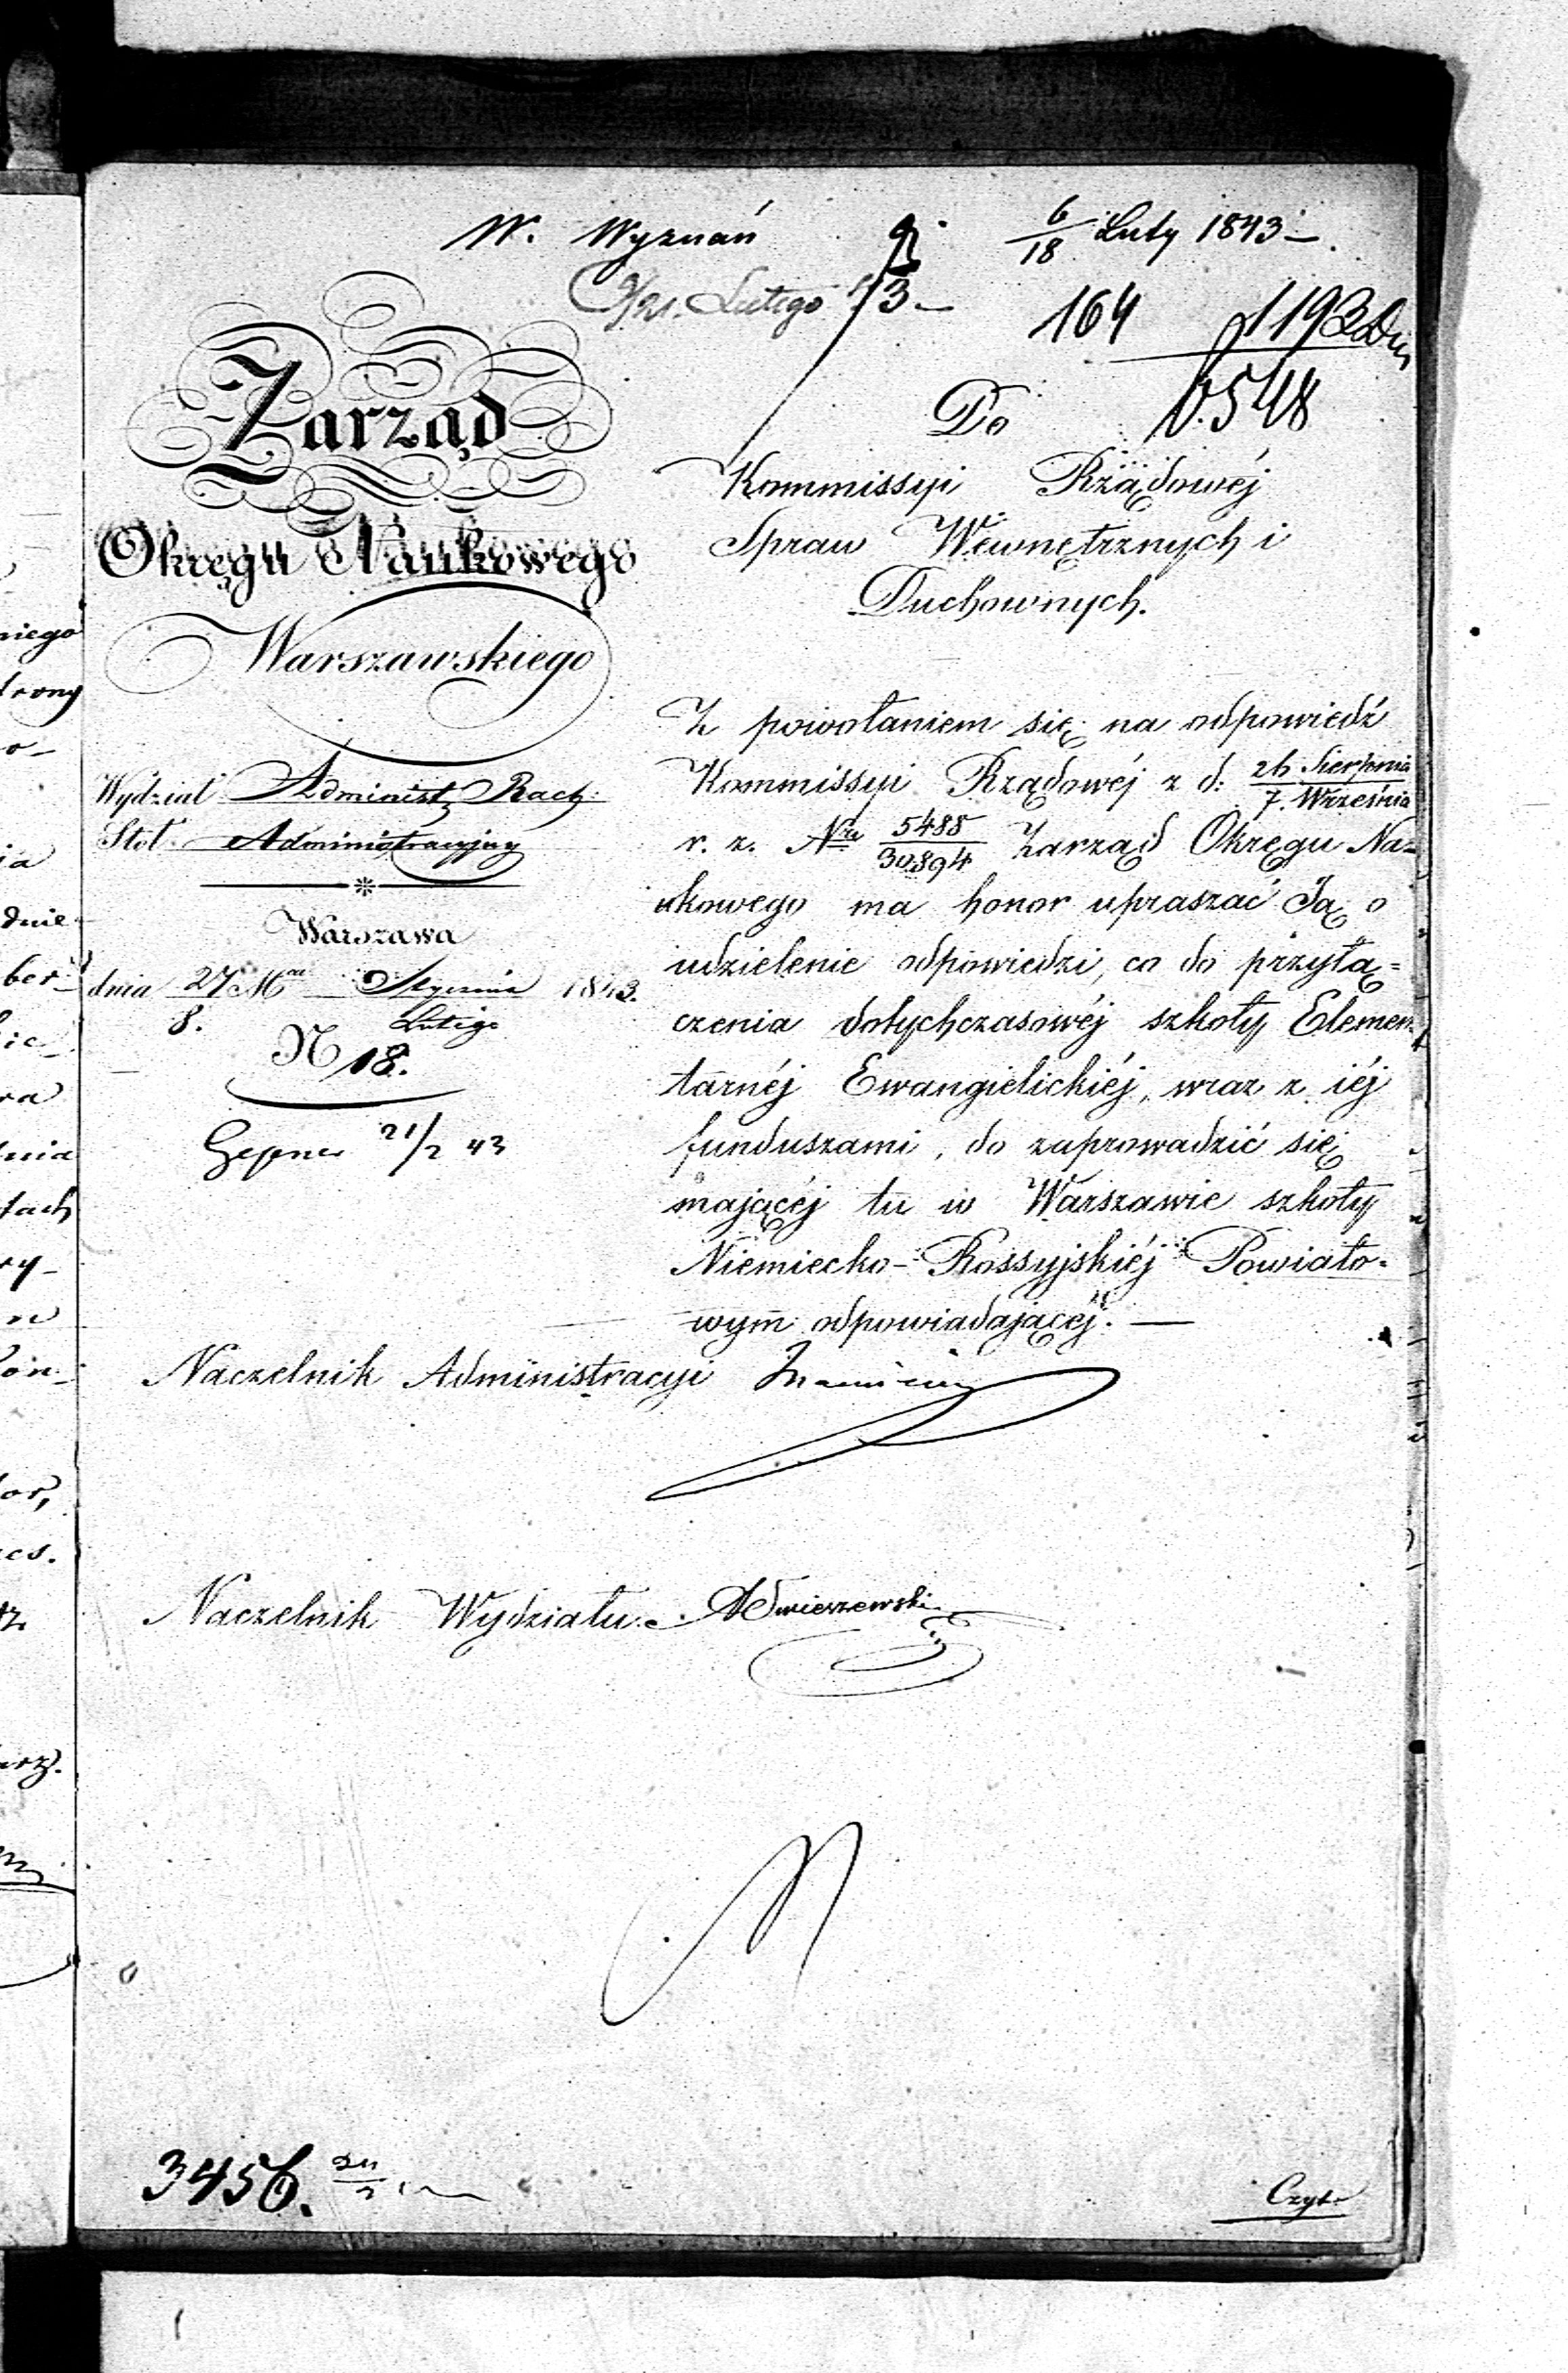 W. Wyznań
6/18 Luty 1843
9/21. Lutego
164
6.548
Zarząd
Okręgu Naukowego
Warszawskiego
Wydział Administ. Rach:
Stoł Administracyjny
Warszawa
dnia 27 Stycznia 1843.
8. Lutego
N 18.
21/2 43
Do
Kommissyi Rządowéj
Spraw Wewnętrznych i
Duchownych.
Z powołaniem się na odpowiedź
Kommissyi Rządowéj z d: 26 Sierpnia / 7. Września
r. z. Nr 5488/30.894 Zarząd Okręgu Na=
ukowego ma honor upraszać Ją o
udzielenie odpowiedzi, co do przyłą=
czenia dotychczasowéj szkoły Elemen
tarnéj Ewangielickiéj, wraz z iéj
funduszami, do zaprowadzić się
mającéj tu w Warszawie szkoły
Niemiecko-Rossyjskiéj Powiato=
wym odpowiadającéj. —
Naczelnik Administracyi
Naczelnik Wydziału
3456.